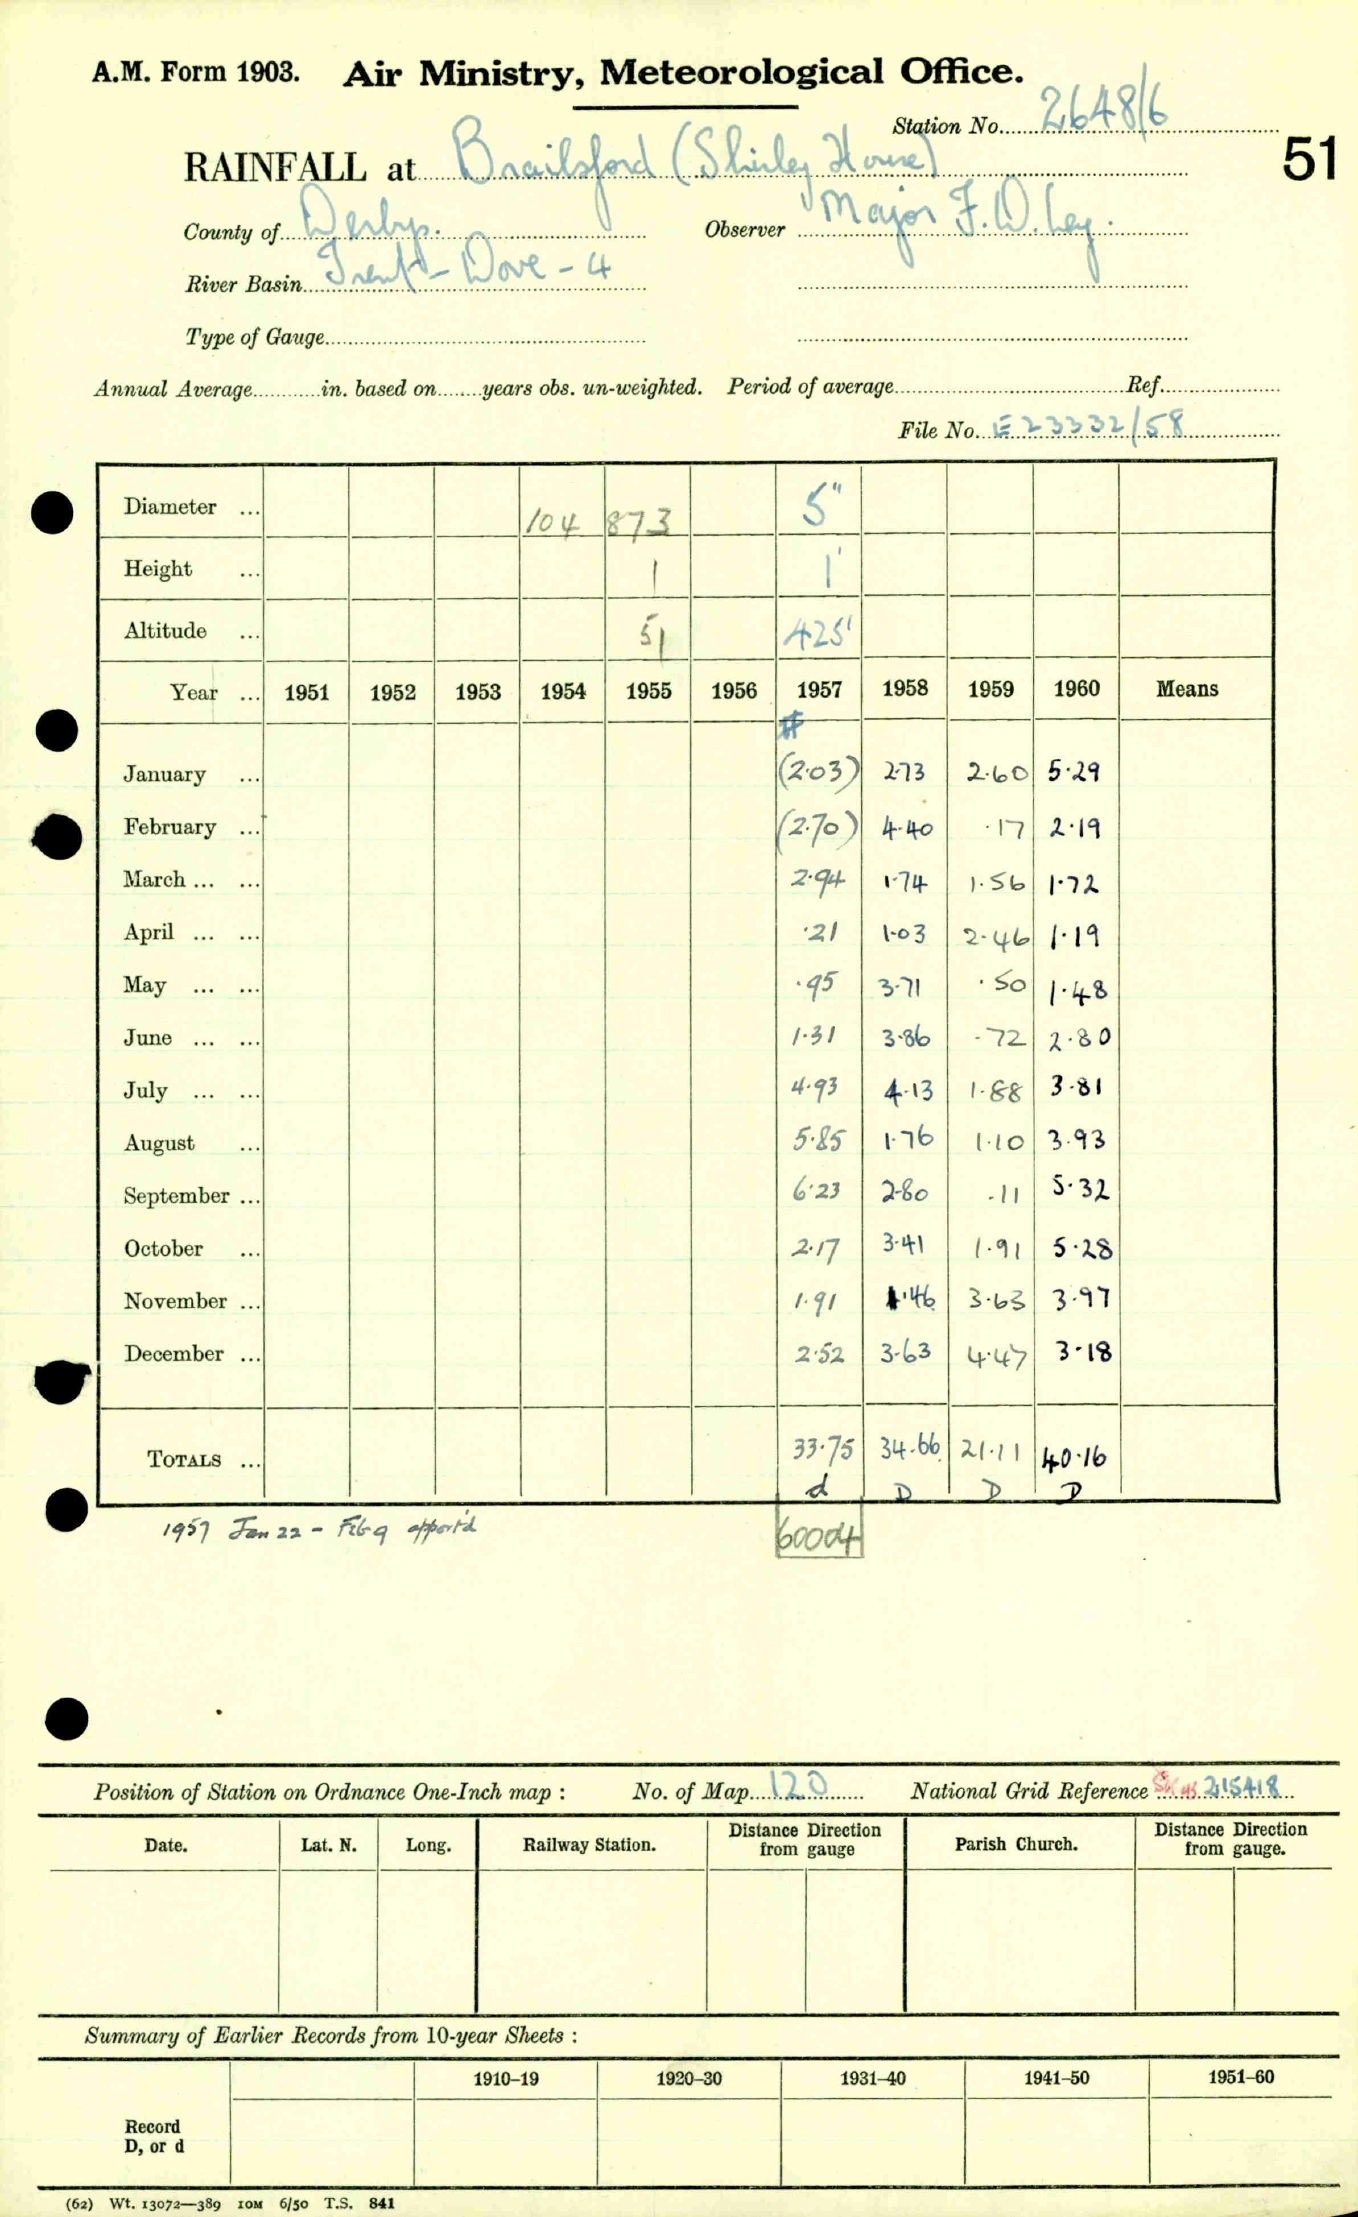 A.M. Form 1903. Air Ministry, Meteorological Office.
Station No. 2648/6
51
RAINFALL at Brailsford (Shirley House)
County of Derby. Observer Major F.D. Ley.
River Basin Trent - Dove - 4
Type of Gauge
Annual Average in. based on years obs. un-weighted. Period of average Ref.
File No. E23332/58
Diameter ... 104 873 5"
Height ... 1 1'
Altitude ... 51 425'
Year ... 1951 1952 1953 1954 1955 1956 1957 1958 1959 1960 Means
#
January ... (2.03) 2.73 2.60 5.29
February ... (2.70) 4.40 .17 2.19
March ... ... 2.94 1.74 1.56 1.72
April ... ... .21 1.03 2.46 1.19
May ... ... .95 3.71 .50 1.48
June ... ... 1.31 3.86 .72 2.80
July ... ... 4.93 4.13 1.88 3.81
August ... 5.85 1.76 1.10 3.93
September ... 6.23 2.80 .11 5.32
October ... 2.17 3.41 1.91 5.28
November ... 1.91 1.46 3.63 3.97
December ... 2.52 3.63 4.47 3.18
TOTALS ... 33.75 34.66 21.11 40.16
d D D D
1957 Jan 22 - Feb 9 apport'd 60004
Position of Station on Ordnance One-Inch map : No. of Map 120 National Grid Reference 215418
Date. Lat. N. Long. Railway Station. Distance from Direction gauge Parish Church. Distance from Direction gauge.
Summary of Earlier Records from 10-year Sheets :
1910–19 1920–30 1931–40 1941–50 1951–60
Record
D, or d
(62) Wt. 13072—389 10M 6/50 T.S. 841